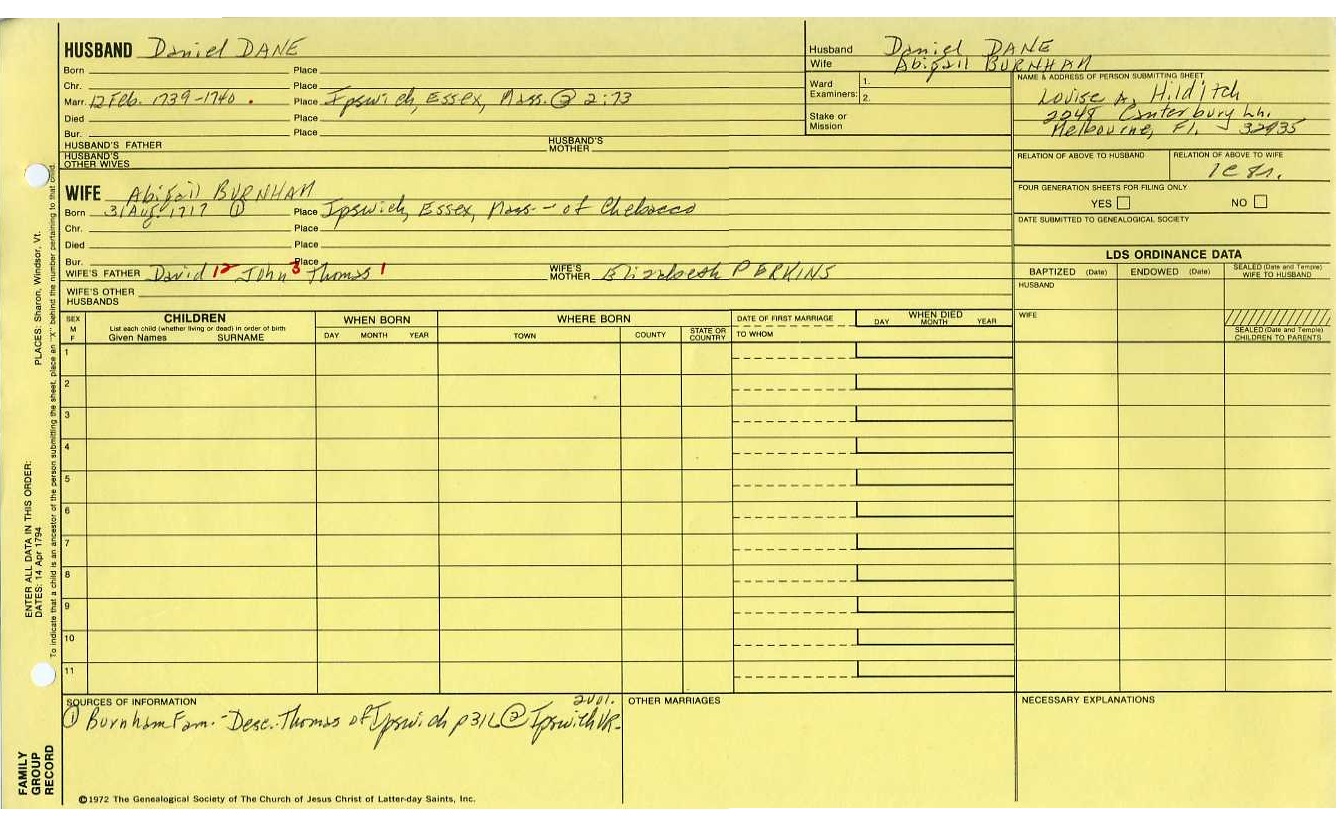 HUSBAND Daniel DANE
Born Place
Chr. Place
Marr. 12 Feb. 1739-1740 . Place Ipswich, Essex, Mass. ② 2:73
Died Place
Bur. Place
HUSBAND'S FATHER HUSBAND'S MOTHER
HUSBAND'S OTHER WIVES
Husband Daniel DANE
Wife Abigail BURNHAM
Ward Examiners: 1.
2.
Stake or Mission
NAME & ADDRESS OF PERSON SUBMITTING SHEET
Louise A. Hilditch
2248 Canterbury Ln.
Melbourne, Fl. 32935
RELATION OF ABOVE TO HUSBAND RELATION OF ABOVE TO WIFE
FOUR GENERATION SHEETS FOR FILING ONLY
YES NO
DATE SUBMITTED TO GENEALOGICAL SOCIETY
WIFE Abigail BURNHAM
Born 31 Aug. 1717 ① Place Ipswich, Essex, Mass - of Chebacco
Chr. Place
Died Place
Bur. Place
WIFE'S FATHER David 12 John 3 Thomas 1 WIFE'S MOTHER Elizabeth PERKINS
WIFE'S OTHER HUSBANDS
LDS ORDINANCE DATA
BAPTIZED (Date) ENDOWED (Date) SEALED (Date and Temple) WIFE TO HUSBAND
HUSBAND
WIFE
SEALED (Date and Temple) CHILDREN TO PARENTS
SEX M F
CHILDREN
List each child (whether living or dead) in order of birth
Given Names SURNAME
WHEN BORN
DAY MONTH YEAR
WHERE BORN
TOWN COUNTY STATE OR COUNTRY
DATE OF FIRST MARRIAGE
TO WHOM
WHEN DIED
DAY MONTH YEAR
1
2
3
4
5
6
7
8
9
10
11
SOURCES OF INFORMATION
2Vol.
① Burnham Fam. - Desc. Thomas of Ipswich p316 ② Ipswich VR.
OTHER MARRIAGES
NECESSARY EXPLANATIONS
©1972 The Genealogical Society of The Church of Jesus Christ of Latter-day Saints, Inc.
FAMILY GROUP RECORD
ENTER ALL DATA IN THIS ORDER:
DATES: 14 Apr 1794
PLACES: Sharon, Windsor, Vt.
To indicate that a child is an ancestor of the person submitting the sheet, place an "X" behind the number pertaining to that child.